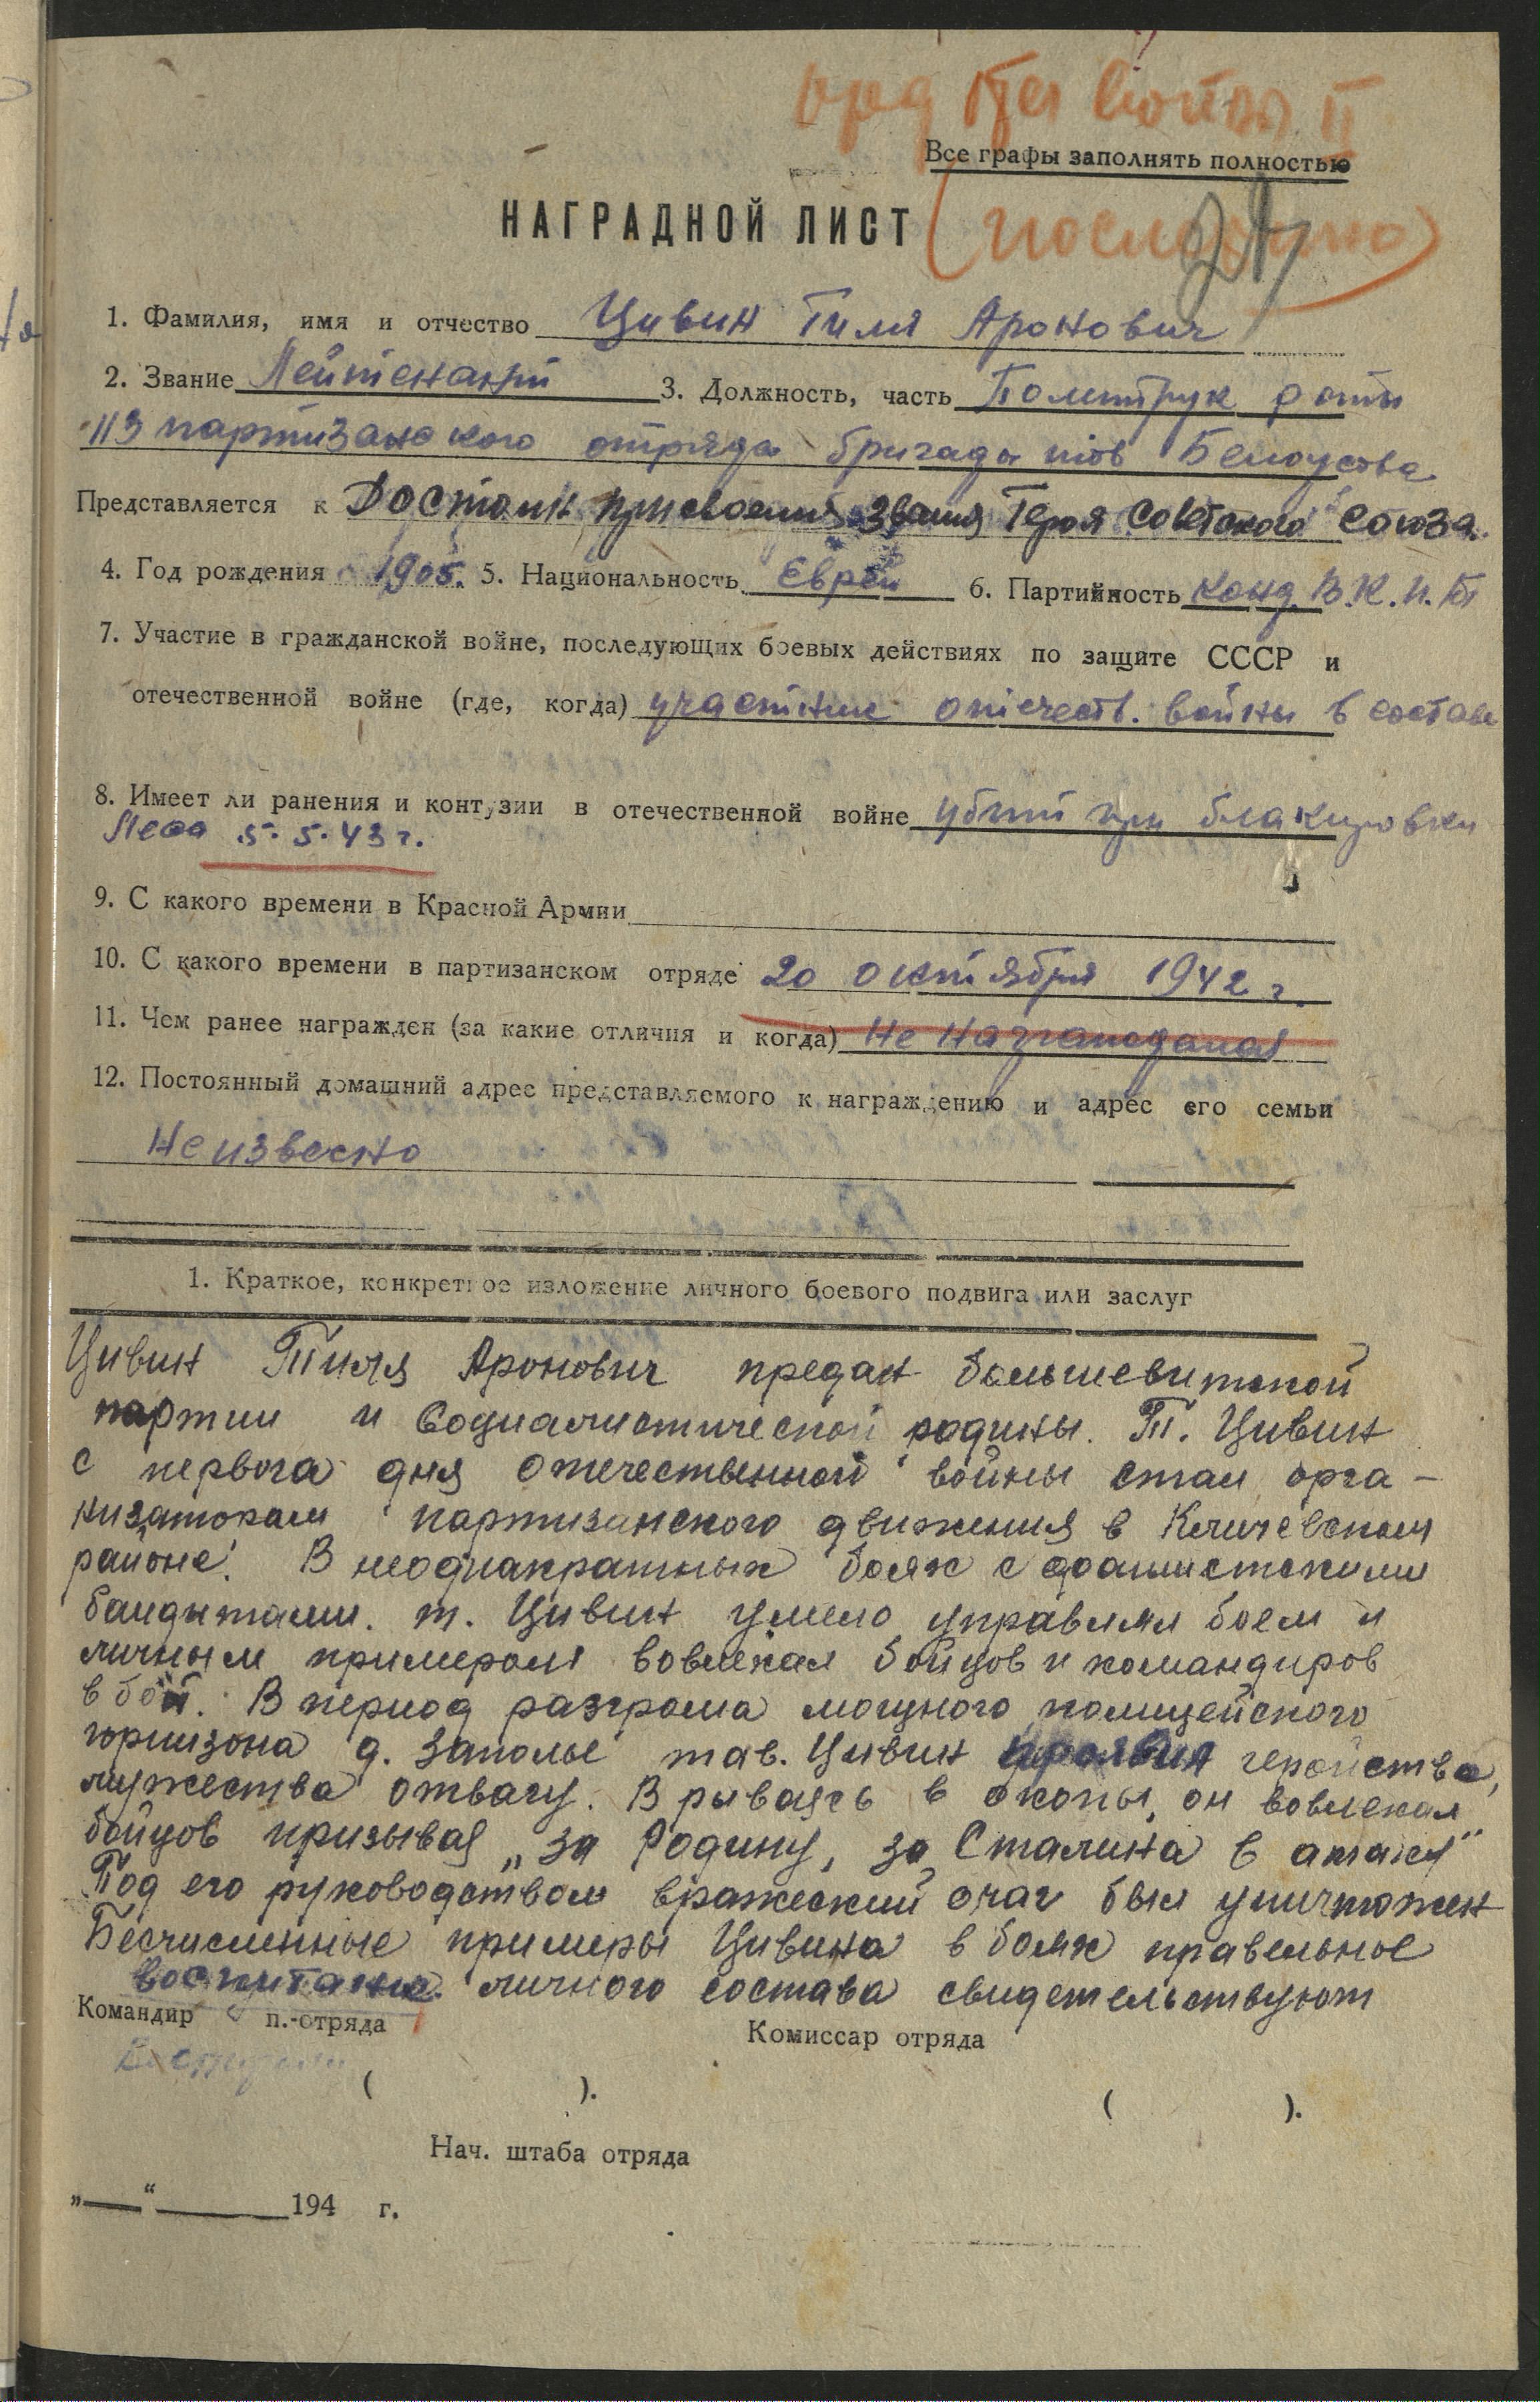 орд От. войны II
Все графы заполнять полностью
НАГРАДНОЙ ЛИСТ
(посмертно)
1. Фамилия, имя и отчество Цивин Гиля Аронович
2. Звание Лейтенант 3. Должность, часть Политрук роты
113 партизанского отряда бригады тов Белоусова
Представляется к Достоин присвоения звания Героя Советского Союза.
4. Год рождения 1905. 5. Национальность Еврей 6. Партийность Канд. В.К.П.Б
7. Участие в гражданской войне, последующих боевых действиях по защите СССР и
отечественной войне (где, когда) участник отечеств. войны в составе
8. Имеет ли ранения и контузии в отечественной войне убит при блакировки
Леса 5.5.43 г.
9. С какого времени в Красной Армии
10. С какого времени в партизанском отряде 20 октября 1942 г.
11. Чем ранее награжден (за какие отличия и когда) Не награждался
12. Постоянный домашний адрес представляемого к награждению и адрес его семьи
Не извесно
1. Краткое, конкретное изложение личного боевого подвига или заслуг
Цивин Гиля Аронович предан большевитской
партии и Социалистической родины. Т. Цивин
с первога дня Отечественной войны стал орга-
низаторам партизанского движения в Кличевском
районе. В неоднакратных боях с фашистскими
бандытами. т. Цивин умело управлял боем и
личным примером вовлекал бойцов и командиров
в бой. В период разгрома мощного полицейского
горнизона д. Заполье тав. Цивин проявил геройства,
мужества отвагу. Врываясь в окопы, он вовлекал
бойцов призывая „за Родину, за Сталина в атаку"
Под его руководством вражеский очаг был уничтожен
Бесчисленные примеры Цивина в боях правельное
воспитание личного состава свидетельствуют
Командир п.-отряда
Комиссар отряда
( ).
( ).
Нач. штаба отряда
„ “ 194 г.